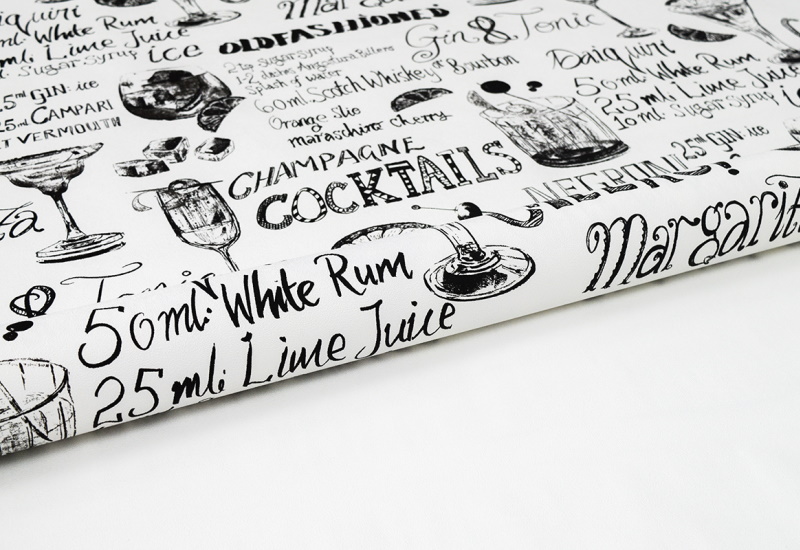 aiquiri
ml: White Rum
ml. Lime Juice
ml. Sugar Syrup ice
OLDFASHIONED
2 tls Sugar Syrup
1-2 dashes Angostura Bitters
Splash of water
60ml. Scotch Whiskey or Bourbon
Orange Slie
maraschino cherry
Gin & Tonic
Daiquiri
50ml: White Rum
25 ml. Lime Juice
10 ml. Sugar Syrup ice
25ml GIN: ice
25ml CAMPARI
ET VERMOUTH
CHAMPAGNE
COCKTAILS
NEGRONI
25ml GIN: ice
Margarit
ta
Tonic
50ml: White Rum
25ml: Lime Juice